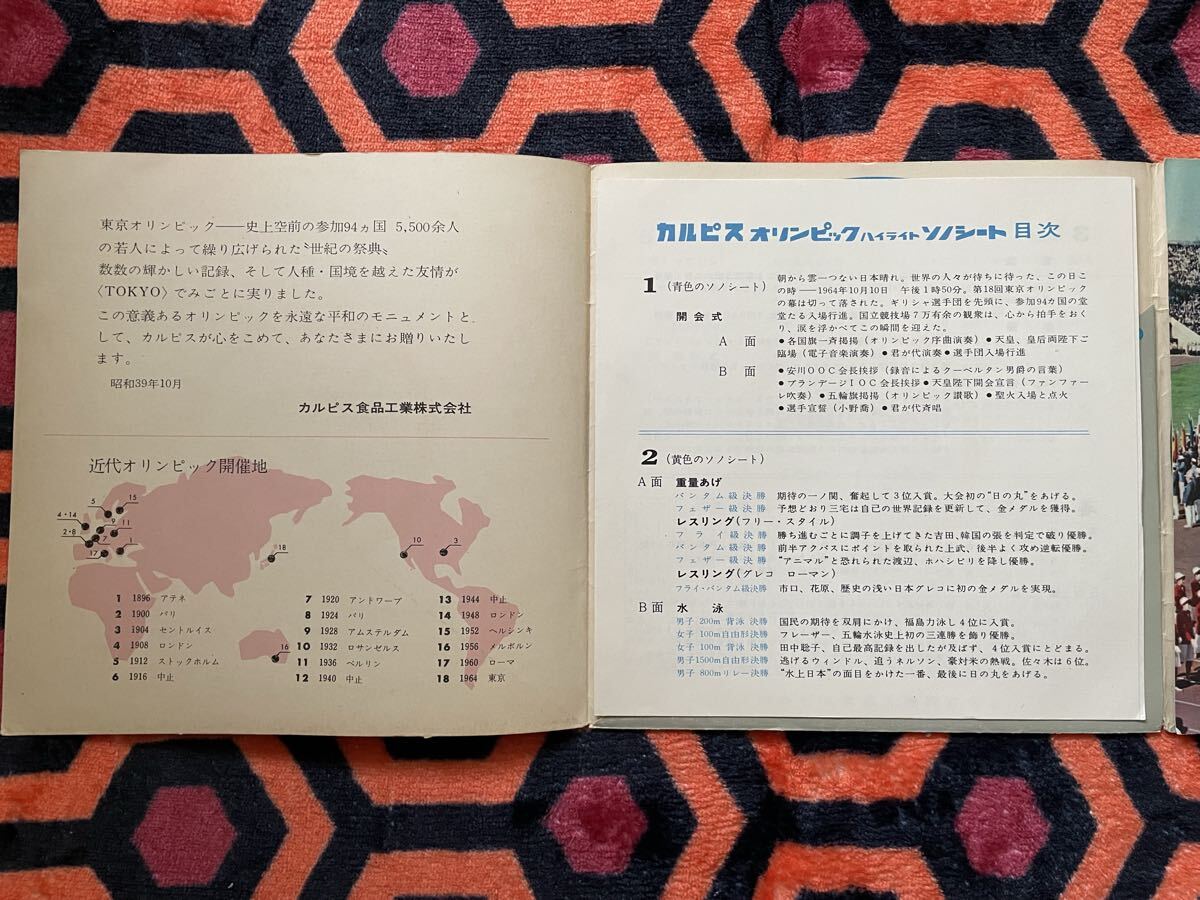 東京オリンピック――史上空前の参加94ヵ国 5,500余人
の若人によって繰り広げられた〝世紀の祭典〟
数数の輝かしい記録、そして人種・国境を越えた友情が
〈TOKYO〉でみごとに実りました。
この意義あるオリンピックを永遠な平和のモニュメントと
して、カルピスが心をこめて、あなたさまにお贈りいたし
ます。
昭和39年10月
カルピス食品工業株式会社
近代オリンピック開催地
5
15
4・14
9
11
2・8
7
17
1
18
10
3
16
1 1896 アテネ
2 1900 パリ
3 1904 セントルイス
4 1908 ロンドン
5 1912 ストックホルム
6 1916 中止
7 1920 アントワープ
8 1924 パリ
9 1928 アムステルダム
10 1932 ロサンゼルス
11 1936 ベルリン
12 1940 中止
13 1944 中止
14 1948 ロンドン
15 1952 ヘルシンキ
16 1956 メルボルン
17 1960 ローマ
18 1964 東京
カルピス オリンピックハイライト ソノシート 目次
1 (青色のソノシート)
開会式
朝から雲一つない日本晴れ。世界の人々が待ちに待った、この日こ
の時――1964年10月10日 午後1時50分。第18回東京オリンピック
の幕は切って落された。ギリシャ選手団を先頭に、参加94カ国の堂
堂たる入場行進。国立競技場7万有余の観衆は、心から拍手をおく
り、涙を浮かべてこの瞬間を迎えた。
A面
●各国旗一斉掲揚(オリンピック序曲演奏)●天皇、皇后両陛下ご
臨場(電子音楽演奏)●君が代演奏●選手団入場行進
B面
●安川OOC会長挨拶(録音によるクーベルタン男爵の言葉)
●ブランデージIOC会長挨拶●天皇陛下開会宣言(ファンファー
レ吹奏)●五輪旗掲揚(オリンピック讃歌)●聖火入場と点火
●選手宣誓(小野喬)●君が代斉唱
2 (黄色のソノシート)
A面 重量あげ
バンタム級決勝 期待の一ノ関、奮起して3位入賞。大会初の"日の丸"をあげる。
フェザー級決勝 予想どおり三宅は自己の世界記録を更新して、金メダルを獲得。
レスリング(フリー・スタイル)
フライ級決勝 勝ち進むごとに調子を上げてきた吉田、韓国の張を判定で破り優勝。
バンタム級決勝 前半アクバスにポイントを取られた上武、後半よく攻め逆転優勝。
フェザー級決勝 "アニマル"と恐れられた渡辺、ホハシビリを降し優勝。
レスリング(グレコ ローマン)
フライ・バンタム級決勝 市口、花原、歴史の浅い日本グレコに初の金メダルを実現。
B面 水泳
男子 200m 背泳 決勝 国民の期待を双肩にかけ、福島力泳し4位に入賞。
女子 100m自由形決勝 フレーザー、五輪水泳史上初の三連勝を飾り優勝。
女子 100m 背泳 決勝 田中聡子、自己最高記録を出したが及ばず、4位入賞にとどまる。
男子1500m自由形決勝 逃げるウィンドル、追うネルソン、豪対米の熱戦。佐々木は6位。
男子 800mリレー決勝 "水上日本"の面目をかけた一番、最後に日の丸をあげる。